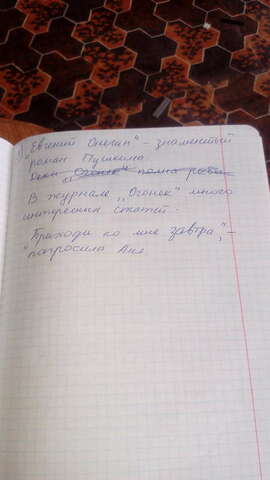 „Евгений Онегин" – знаменитый
роман Пушкина.
Река „Огонек" полна рыбы.
В журнале „Огонек" много
интересних статей.
"Приходи ко мне завтра", –
попросила Аня.